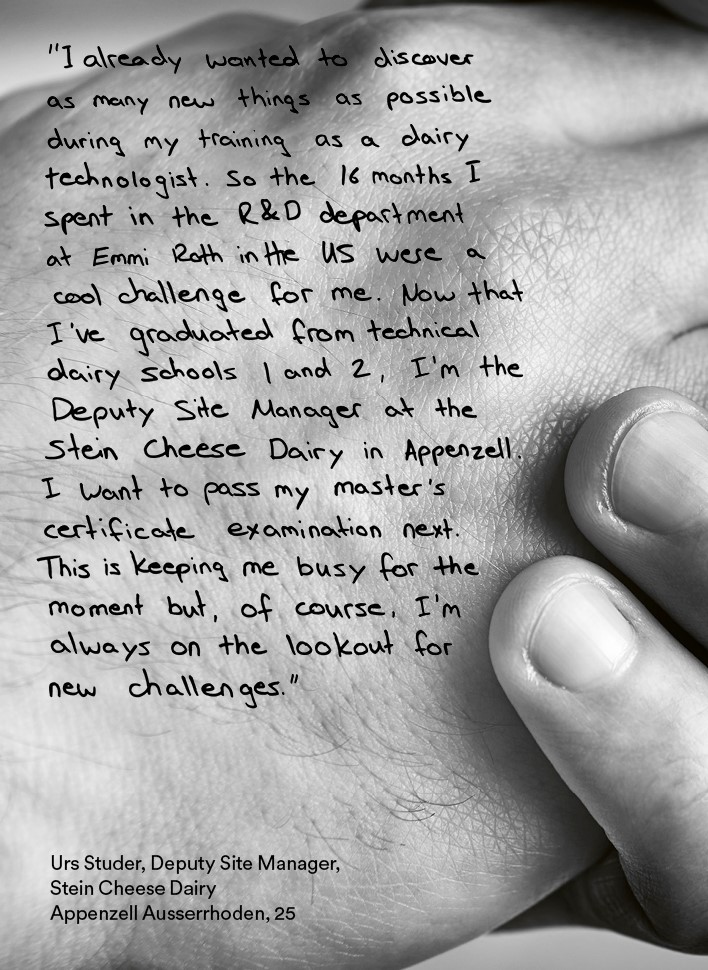 "I already wanted to discover
as many new things as possible
during my training as a dairy
technologist. So the 16 months I
spent in the R&D department
at Emmi Roth in the US were a
cool challenge for me. Now that
I've graduated from technical
dairy schools 1 and 2, I'm the
Deputy Site Manager at the
Stein Cheese Dairy in Appenzell.
I want to pass my master's
certificate examination next.
This is keeping me busy for the
moment but, of course, I'm
always on the lookout for
new challenges."
Urs Studer, Deputy Site Manager,
Stein Cheese Dairy
Appenzell Ausserrhoden, 25